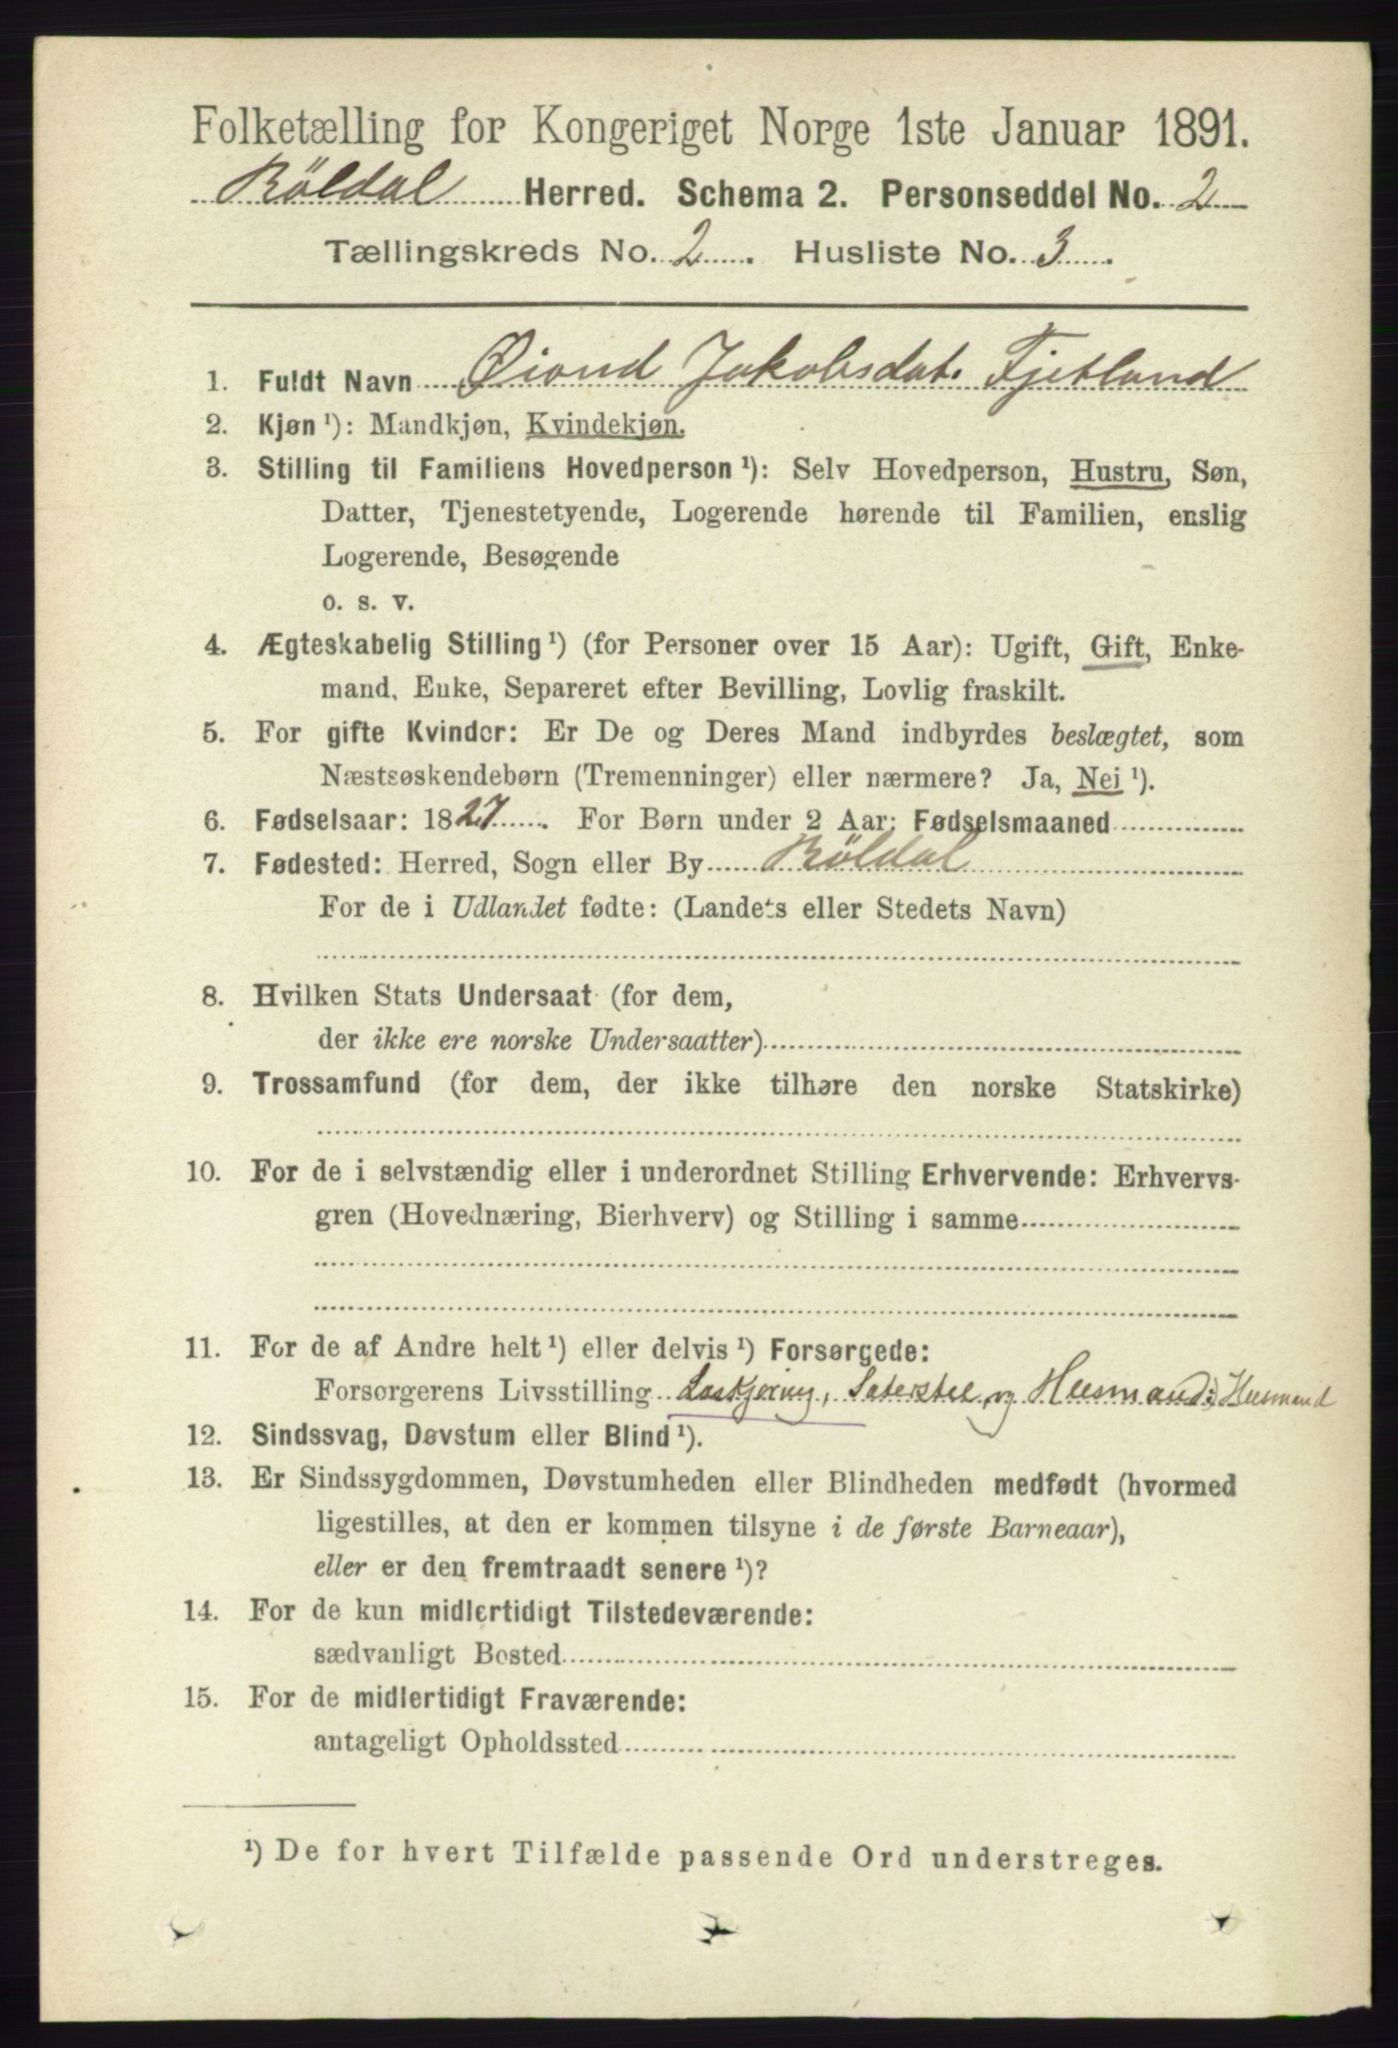 Folketælling for Kongeriget Norge 1ste Januar 1891.
Röldal Herred. Schema 2. Personseddel No. 2
Tællingskreds No. 2. Husliste No. 3.
1. Fuldt Navn Øiond Jakobsdat. Fjetland
2. Kjøn ¹): Mandkjøn, Kvindekjøn.
3. Stilling til Familiens Hovedperson ¹): Selv Hovedperson, Hustru, Søn,
Datter, Tjenestetyende, Logerende hørende til Familien, enslig
Logerende, Besøgende
o. s. v.
4. Ægteskabelig Stilling ¹) (for Personer over 15 Aar): Ugift, Gift, Enke-
mand, Enke, Separeret efter Bevilling, Lovlig fraskilt.
5. For gifte Kvinder: Er De og Deres Mand indbyrdes beslægtet, som
Næstsøskendebørn (Tremenninger) eller nærmere? Ja, Nei ¹).
6. Fødselsaar: 1827. For Børn under 2 Aar: Fødselsmaaned
7. Fødested: Herred, Sogn eller By Röldal
For de i Udlandet fødte: (Landets eller Stedets Navn)
8. Hvilken Stats Undersaat (for dem,
der ikke ere norske Undersaatter)
9. Trossamfund (for dem, der ikke tilhøre den norske Statskirke)
10. For de i selvstændig eller i underordnet Stilling Erhvervende: Erhvervs-
gren (Hovednæring, Bierhverv) og Stilling i samme
11. For de af Andre helt ¹) eller delvis ¹) Forsørgede:
Forsørgerens Livsstilling og Huusmand: Huusmand
12. Sindssvag, Døvstum eller Blind ¹).
13. Er Sindssygdommen, Døvstumheden eller Blindheden medfødt (hvormed
ligestilles, at den er kommen tilsyne i de første Barneaar),
eller er den fremtraadt senere ¹)?
14. For de kun midlertidigt Tilstedeværende:
sædvanligt Bosted
15. For de midlertidigt Fraværende:
antageligt Opholdssted
¹) De for hvert Tilfælde passende Ord understreges.